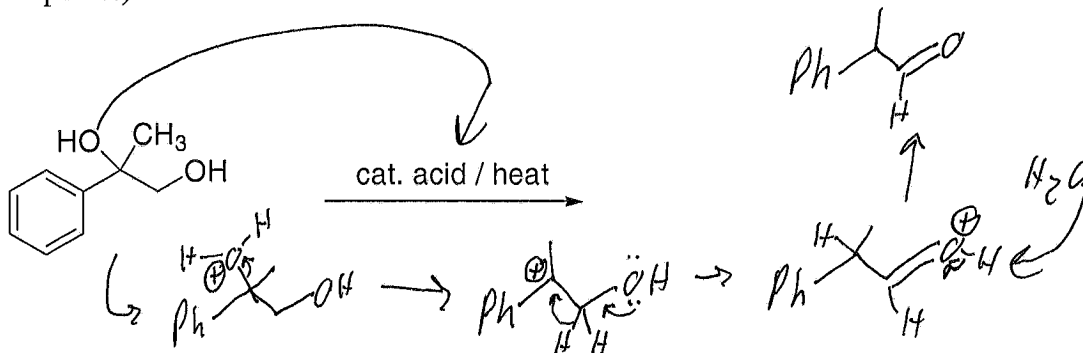 HO CH3
OH
cat. acid / heat
Ph O
H
H2O
H O H
⊕
Ph OH
⊕ ÖH
Ph H H
H O H
⊕
Ph H